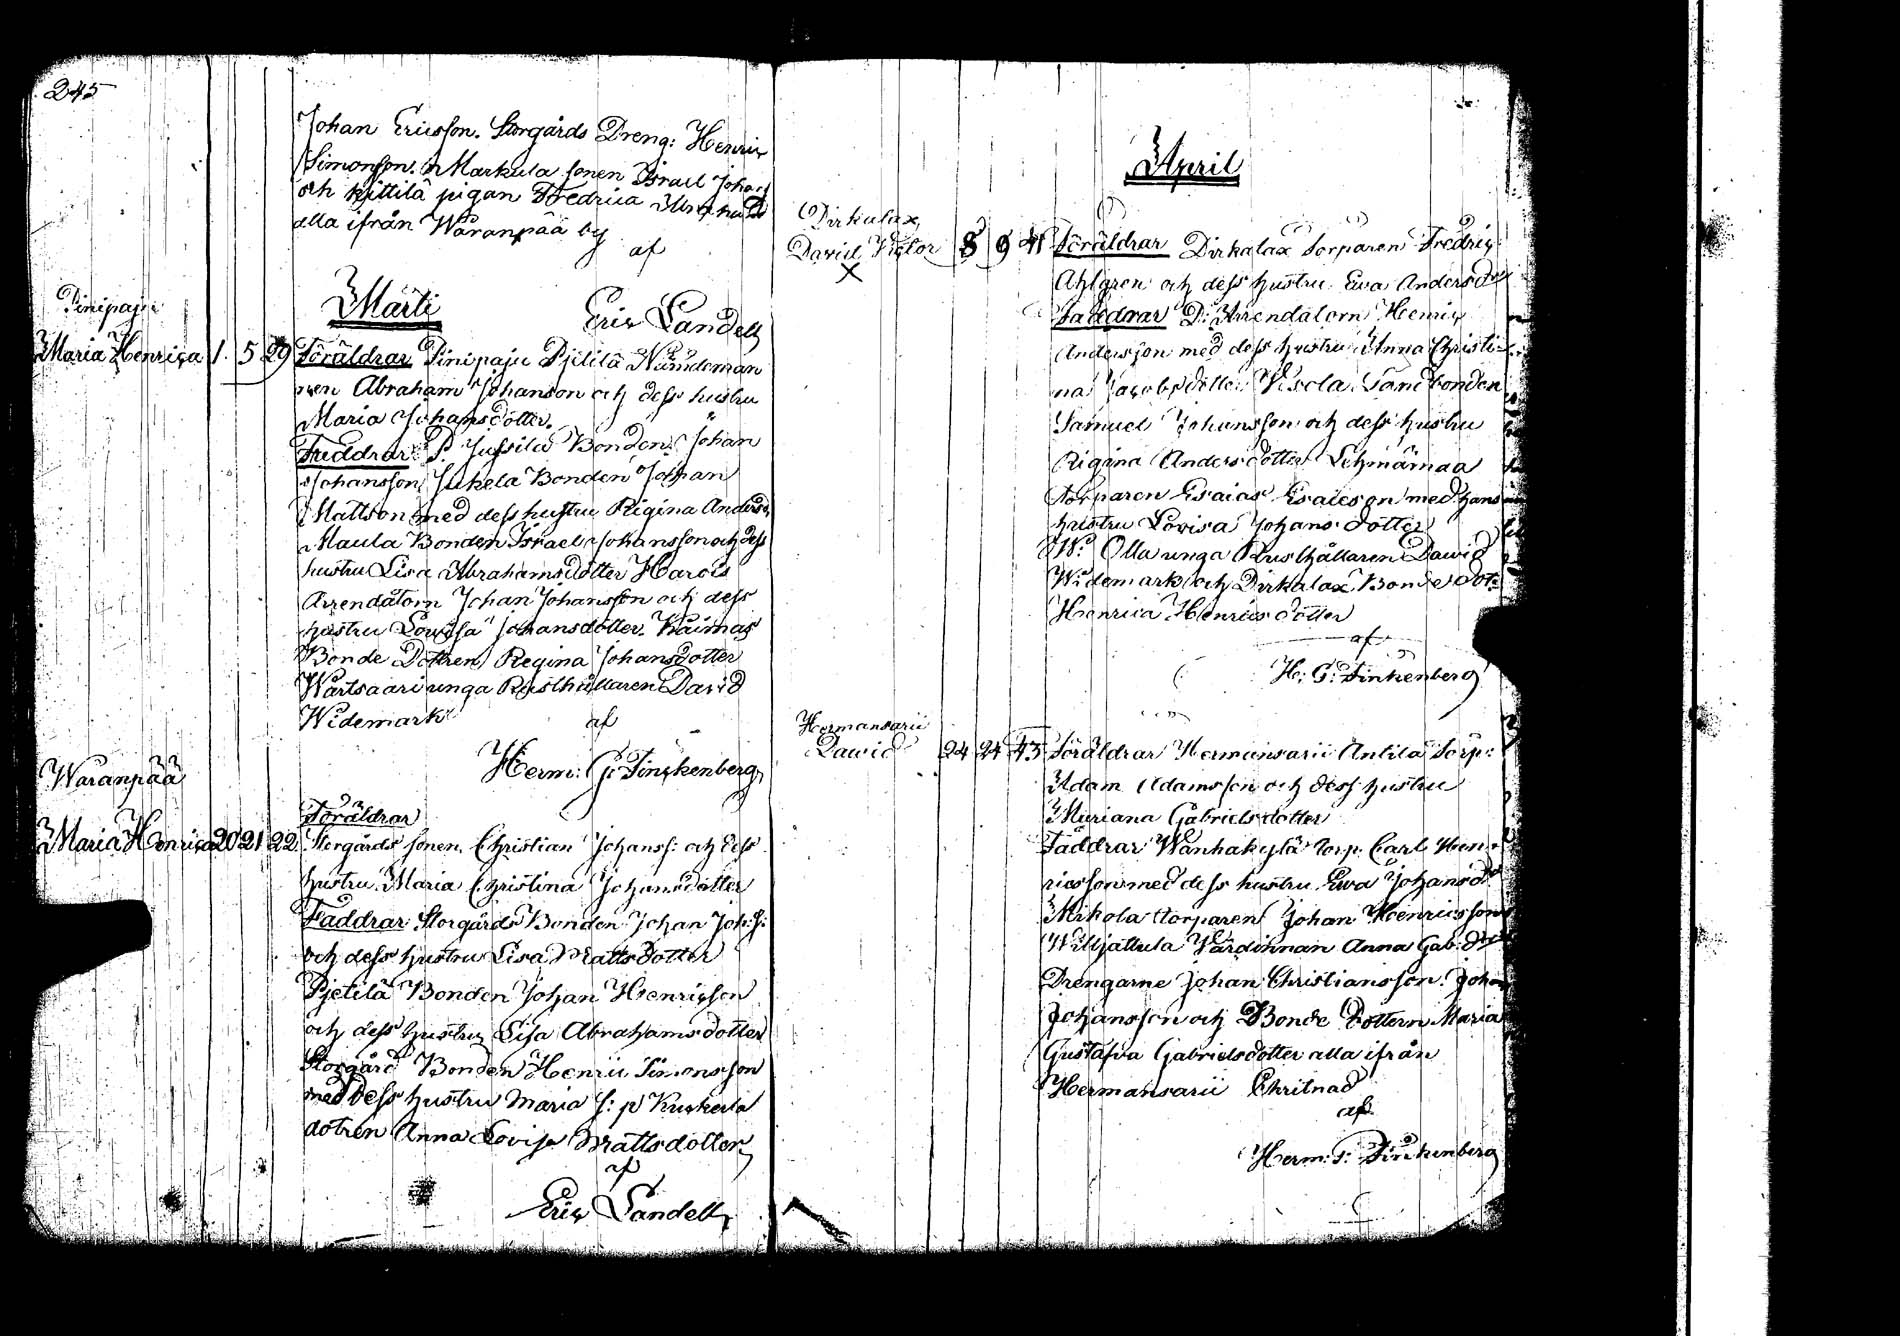 245
Johan Ericsson. Storgårds Dreng: Henric
Simonsson. Markula sonen Israel Johans
och Kjttilä pigan Fredrica
alla ifrån Waranpää by
af
Eric Landell
Marti
Pinipaju
Maria Henrica 1. 5 29 Föräldrar Pinipaju Pjetilä Nämdeman
nen Abraham Johanson och dess hustru
Maria Johansdotter.
Faddrar P. Jussila Bonden Johan
Johansson Jukela Bonden Johan
Mattson med dess hustru Rigina Anders
Maula Bonden Israel Johansson och dess
hustru Lisa Abrahamsdotter Harois
Arrendatorn Johan Johansson och dess
hustru Lowisa Johansdotter. Kaimas
Bonde Dottren Regina Johansdotter
Wartsaari unga Rusthållaren David
Widemark af
Herm: G: Finckenberg
Waranpää
Föräldrar
Maria Henrica 20 21 22 Storgårds sonen Christian Johanss: och dess
hustru Maria Christina Johansdotter
Faddrar Storgårds Bonden Johan Joh:s:
och dess hustru Lisa Mattsdotter
Pjetilä Bonden Johan Henricson
och dess hustru Lisa Abrahamsdotter
Storgård Bonden Henric Simonsson
med dess hustru Maria s: p
dotren Anna Lovisa Mattsdotter
af
Eric Landell
April
Dirkalax
David Victor 8 9 41 Föräldrar Dirkalax Torparen Fredric
X
Ahlgren och dess hustru Ewa Andersdr
Faddrar D: Arrendatorn Henric
Andersson med dess hustru Anna Christi-
na Jacobsdotter Wesola Landbonden
Samuel Johansson och dess hustru
Rigina Andersdotter Lehmämaa
Torparen Esaias Esaieson med hans
hustru Lovisa Johansdotter
W: Olla unga Rusthållaren Dawid
Widemark och Dirkalax Bonde dot:
Henrica Henricsdotter
af
H: G: Finkenberg
Hermansarii
Dawid 24 24 43 Föräldrar Hermansarii Antila Torp:
Adam Adamsson och dess hustru
Mariana Gabrielsdotter
Faddrar Wanhakylä torp. Carl Hen-
ricsson med dess hustru Ewa Johansdr
Mikola torparen Johan Henricsson
Willjattula Värdinnan Anna Gab:
Drengarne Johan Christiansson. Johan
Johansson och Bonde Dottern Maria
Gustafva Gabrielsdotter alla ifrån
Hermansarii
af
Herm: G: Finkenberg